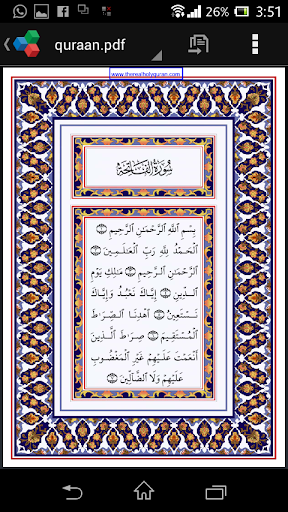 26% 3:51
quraan.pdf
www.therealholyquran.com
سُورَةُ الْفَاتِحَةِ
بِسْمِ اللَّهِ الرَّحْمَٰنِ الرَّحِيمِ ۝
الْحَمْدُ لِلَّهِ رَبِّ الْعَالَمِينَ ۝
الرَّحْمَٰنِ الرَّحِيمِ ۝ مَالِكِ يَوْمِ
الدِّينِ ۝ إِيَّاكَ نَعْبُدُ وَإِيَّاكَ
نَسْتَعِينُ ۝ اهْدِنَا الصِّرَاطَ
الْمُسْتَقِيمَ ۝ صِرَاطَ الَّذِينَ
أَنْعَمْتَ عَلَيْهِمْ غَيْرِ الْمَغْضُوبِ
عَلَيْهِمْ وَلَا الضَّالِّينَ ۝